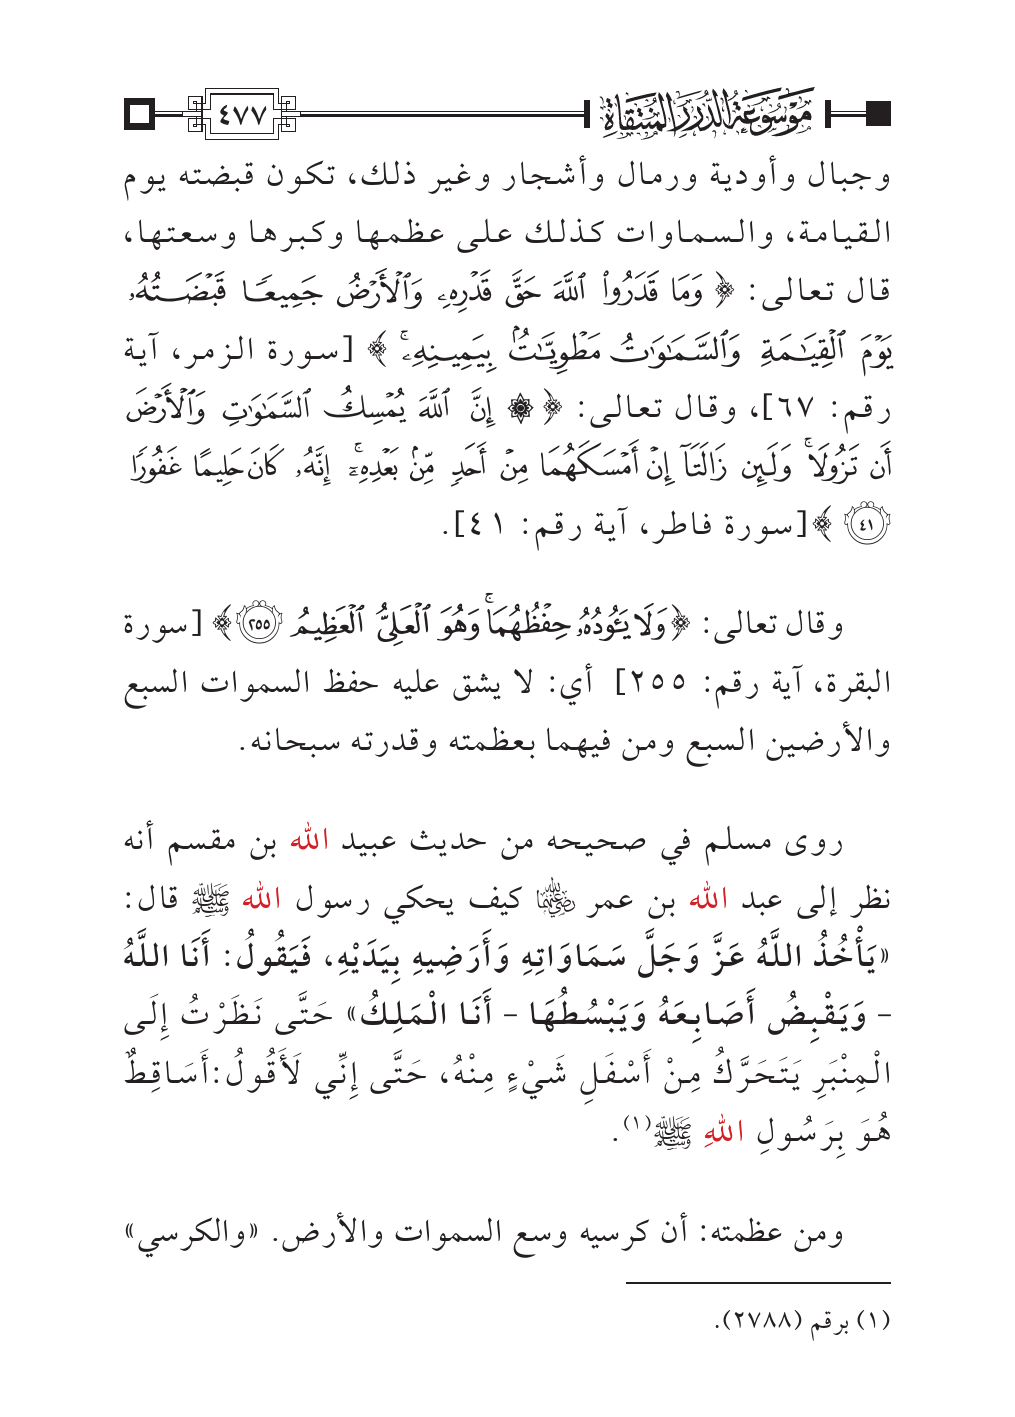 موسوعة الدرر المنتقاة ٤٧٧
وجبال وأودية ورمال وأشجار وغير ذلك، تكون قبضته يوم
القيامة، والسماوات كذلك على عظمها وكبرها وسعتها،
قال تعالى: ﴿ وَمَا قَدَرُوا۟ ٱللَّهَ حَقَّ قَدْرِهِۦ وَٱلْأَرْضُ جَمِيعًا قَبْضَتُهُۥ
يَوْمَ ٱلْقِيَٰمَةِ وَٱلسَّمَٰوَٰتُ مَطْوِيَّٰتُۢ بِيَمِينِهِۦ ۚ ﴾ [سورة الزمر، آية
رقم: ٦٧]، وقال تعالى: ﴿ ۞ إِنَّ ٱللَّهَ يُمْسِكُ ٱلسَّمَٰوَٰتِ وَٱلْأَرْضَ
أَن تَزُولَا ۚ وَلَئِن زَالَتَآ إِنْ أَمْسَكَهُمَا مِنْ أَحَدٍ مِّنۢ بَعْدِهِۦٓ ۚ إِنَّهُۥ كَانَ حَلِيمًا غَفُورًا
٤١ ﴾ [سورة فاطر، آية رقم: ٤١].
وقال تعالى: ﴿وَلَا يَـُٔودُهُۥ حِفْظُهُمَا ۚ وَهُوَ ٱلْعَلِىُّ ٱلْعَظِيمُ ٢٥٥﴾ [سورة
البقرة، آية رقم: ٢٥٥] أي: لا يشق عليه حفظ السموات السبع
والأرضين السبع ومن فيهما بعظمته وقدرته سبحانه.
روى مسلم في صحيحه من حديث عبيد الله بن مقسم أنه
نظر إلى عبد الله بن عمر رضي الله عنهما كيف يحكي رسول الله ﷺ قال:
«يَأْخُذُ اللَّهُ عَزَّ وَجَلَّ سَمَاوَاتِهِ وَأَرَضِيهِ بِيَدَيْهِ، فَيَقُولُ: أَنَا اللَّهُ
– وَيَقْبِضُ أَصَابِعَهُ وَيَبْسُطُهَا – أَنَا الْمَلِكُ» حَتَّى نَظَرْتُ إِلَى
الْمِنْبَرِ يَتَحَرَّكُ مِنْ أَسْفَلِ شَيْءٍ مِنْهُ، حَتَّى إِنِّي لَأَقُولُ:أَسَاقِطٌ
هُوَ بِرَسُولِ اللهِ ﷺ(١).
ومن عظمته: أن كرسيه وسع السموات والأرض. «والكرسي»
(١) برقم (٢٧٨٨).